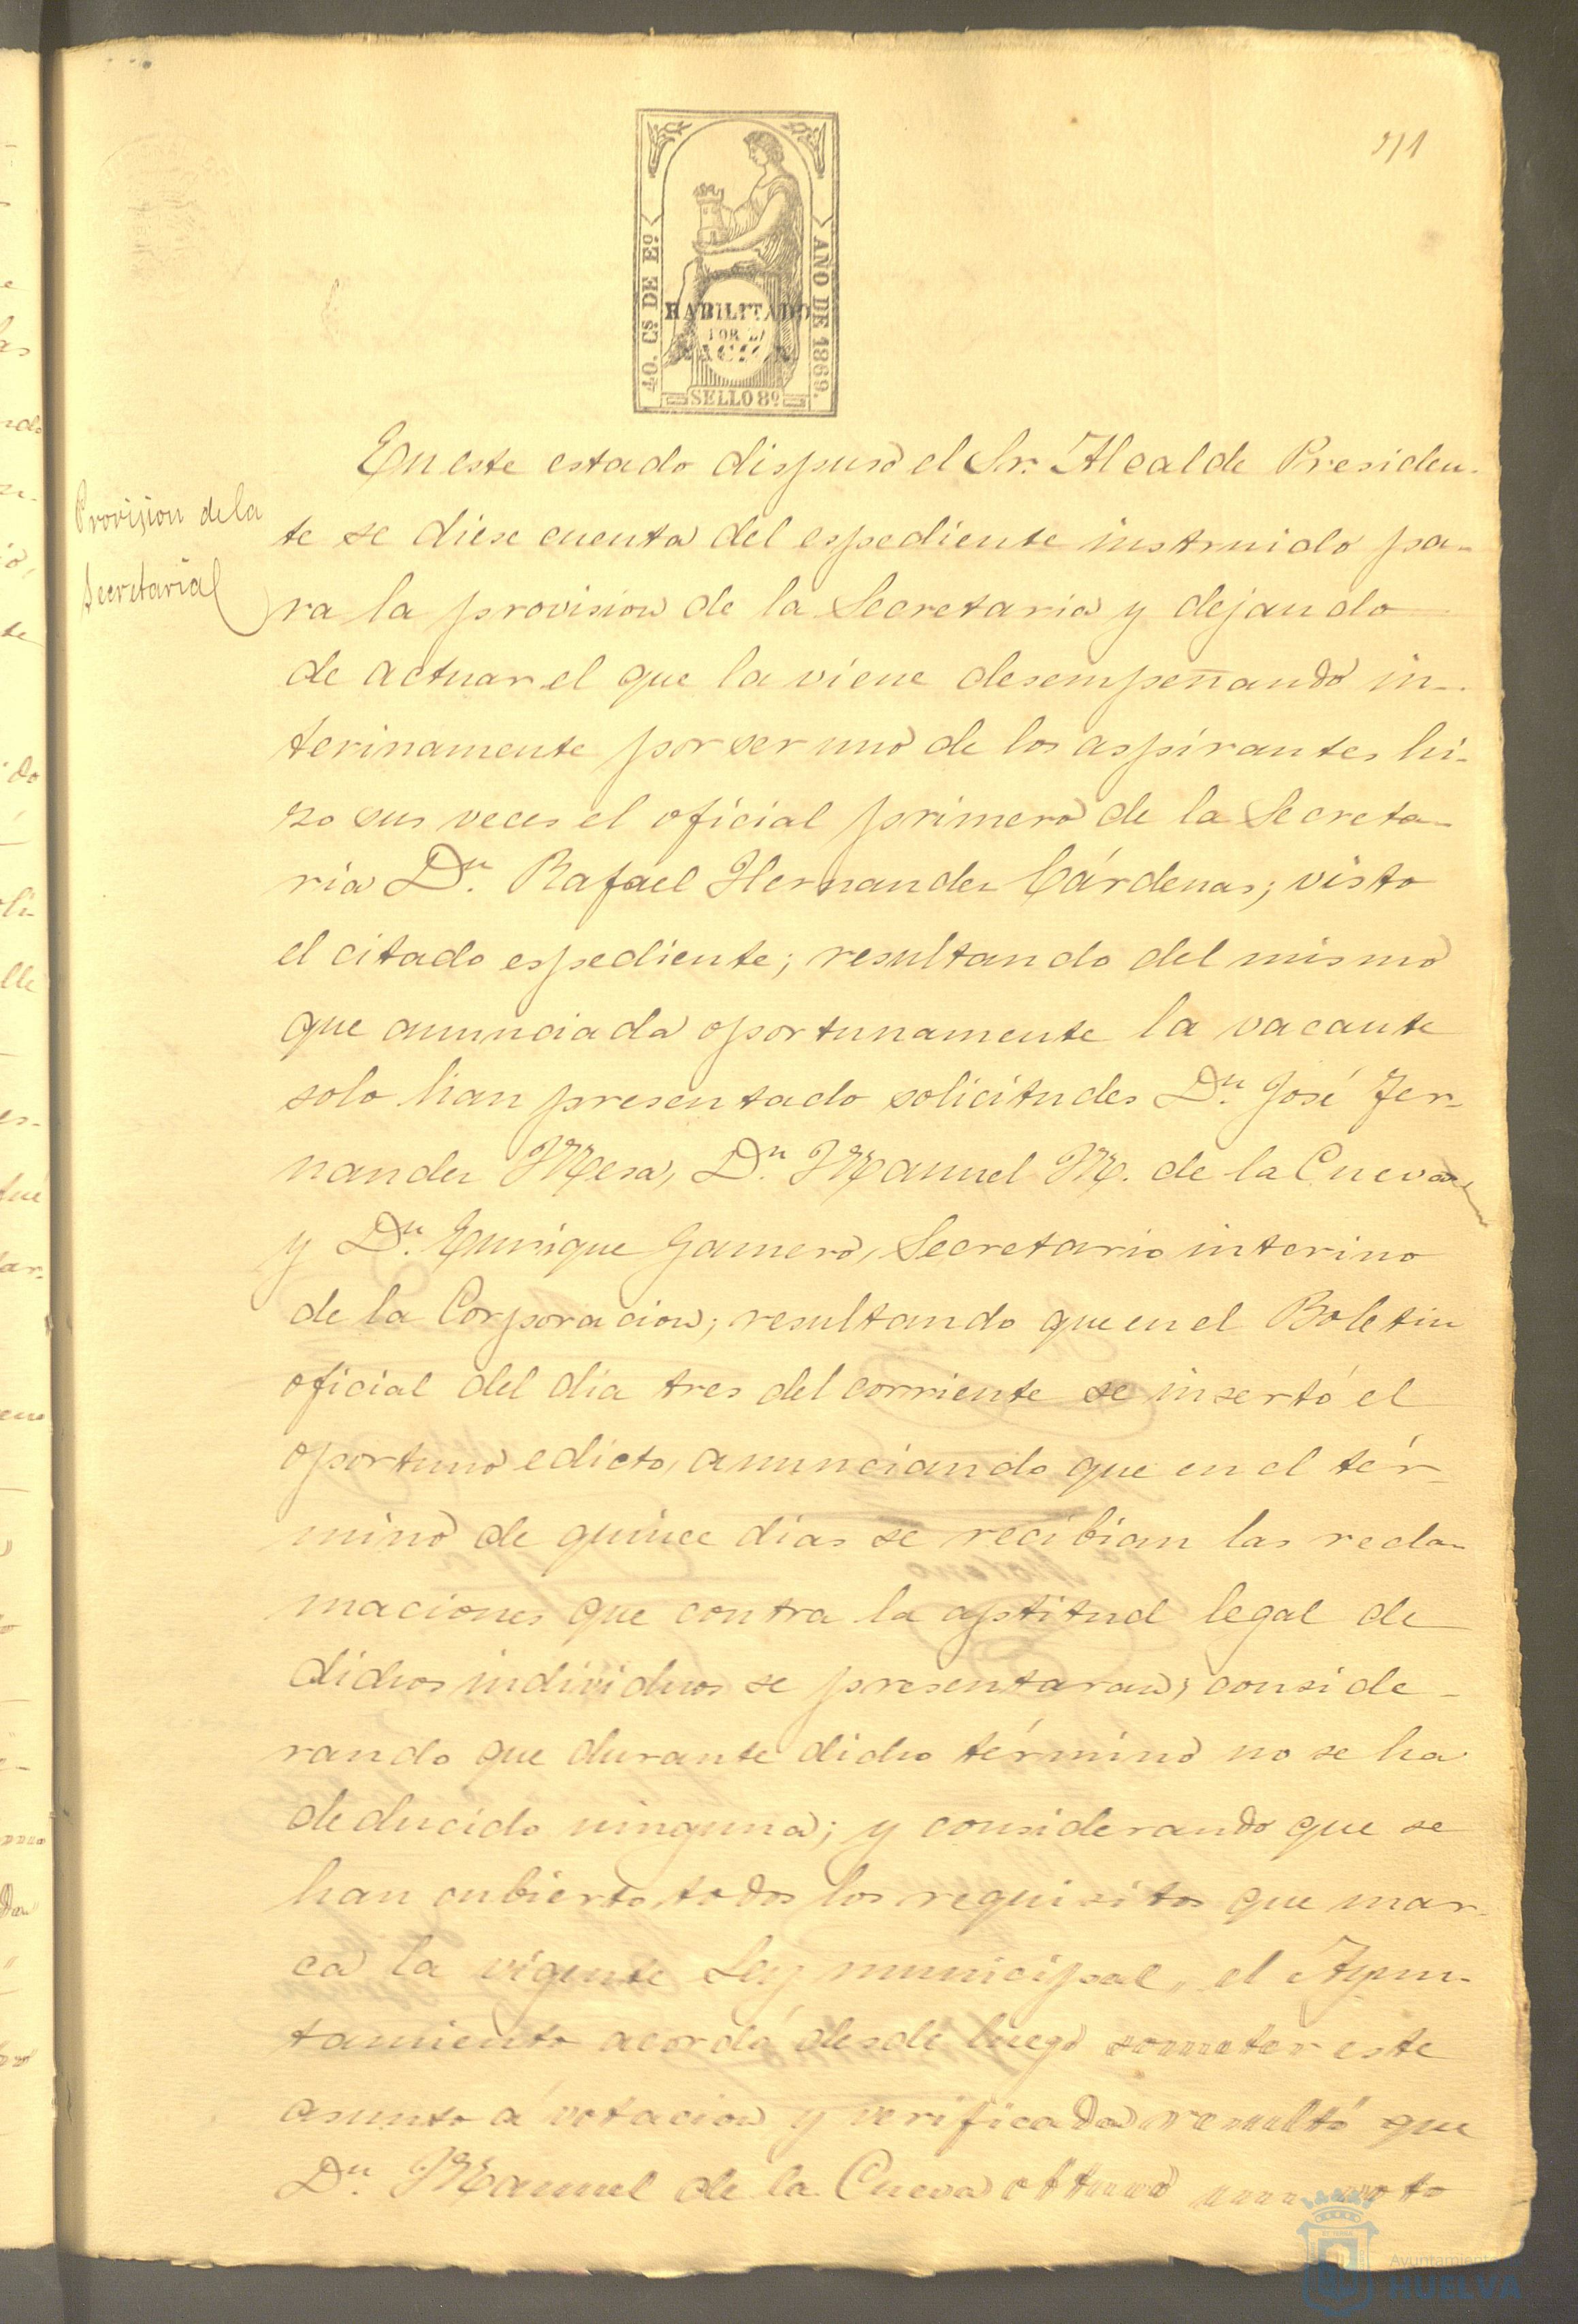 40. Cs. DE Eº.
AÑO DE 1869.
HABILITADO
POR LA
NACION
SELLO 8º
Provision de la
Secretaria
En este estado dispuso el Sr. Alcalde Presiden-
te se diese cuenta del espediente instruido pa-
ra la provision de la Secretaria y dejando
de actuar el que la viene desempeñando in-
terinamente por ser uno de los aspirantes hi-
zo sus veces el oficial primero de la Secreta-
ria Dn. Rafael Hernandez Cárdenas; visto
el citado espediente; resultando del mismo
que anunciada oportunamente la vacante
solo han presentado solicitudes Dn. José Fer-
nandez Mesa, Dn. Manuel M. de la Cueva
y Dn. Enrique Gamero, Secretario interino
de la Corporacion; resultando que en el Boletin
oficial del dia tres del corriente se insertó el
oportuno edicto, anunciando que en el tér-
mino de quince dias se recibian las recla-
maciones que contra la aptitud legal de
dichos individuos se presentaran; conside-
rando que durante dicho término no se ha
deducido ninguna; y considerando que se
han cubierto todos los requisitos que mar-
ca la vigente Ley municipal, el Ayun-
tamiento acordó desde luego someter este
asunto á votacion y verificada resultó que
Dn. Manuel de la Cueva obtuvo un voto
Ayuntamiento
HUELVA